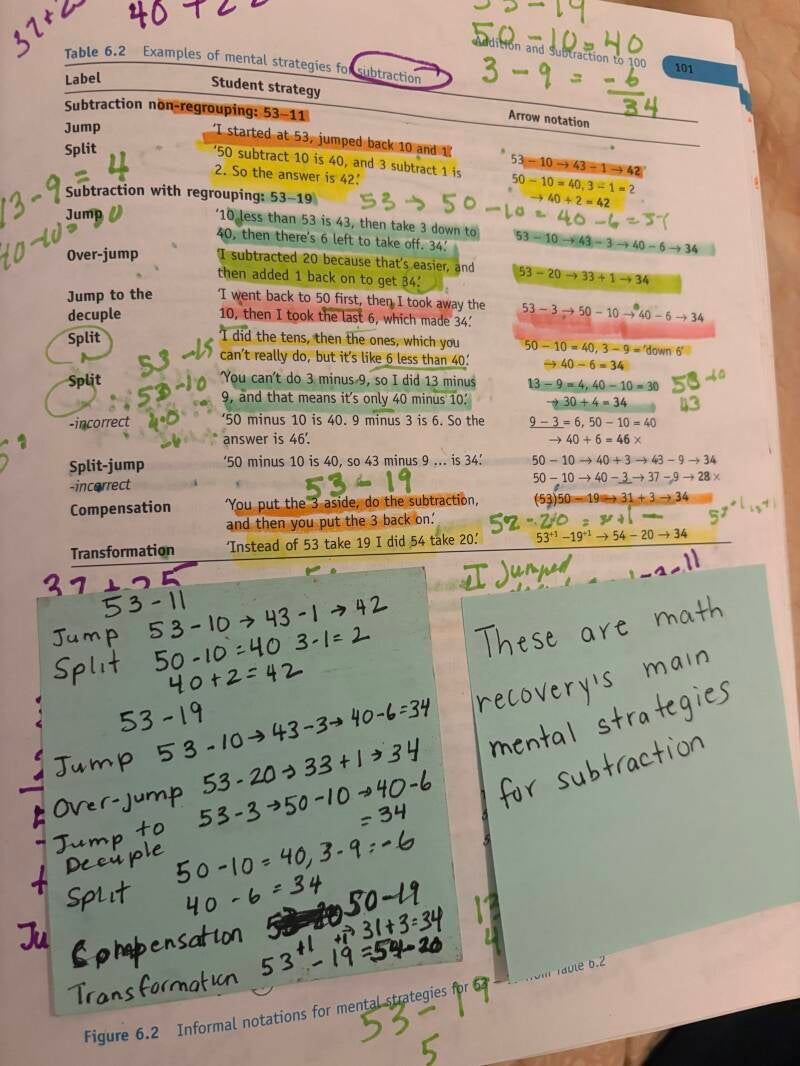 37+2
40+22
53-19
50-10=40
3-9=-6
34
Addition and Subtraction to 100 101
Table 6.2 Examples of mental strategies for subtraction
Label Student strategy Arrow notation
Subtraction non-regrouping: 53–11
Jump 'I started at 53, jumped back 10 and 1.' 53 – 10 → 43 – 1 → 42
Split '50 subtract 10 is 40, and 3 subtract 1 is 50 – 10 = 40, 3 – 1 = 2
2. So the answer is 42.' → 40 + 2 = 42
13-9=4
Subtraction with regrouping: 53–19 53 → 50 -10 = 40 -6 =
Jump '10 less than 53 is 43, then take 3 down to 53 – 10 → 43 – 3 → 40 – 6 → 34
40, then there's 6 left to take off. 34.'
Over-jump 'I subtracted 20 because that's easier, and 53 – 20 → 33 + 1 → 34
then added 1 back on to get 34.'
Jump to the 'I went back to 50 first, then I took away the 53 – 3 → 50 – 10 → 40 – 6 → 34
decuple 10, then I took the last 6, which made 34.'
Split 'I did the tens, then the ones, which you 50 – 10 = 40, 3 – 9 = 'down 6'
can't really do, but it's like 6 less than 40.' → 40 – 6 = 34
53 -15
Split 'You can't do 3 minus 9, so I did 13 minus 13 – 9 = 4, 40 – 10 = 30 53 -10
53 -10 9, and that means it's only 40 minus 10.' → 30 + 4 = 34 43
-incorrect 40 '50 minus 10 is 40. 9 minus 3 is 6. So the 9 – 3 = 6, 50 – 10 = 40
-6 answer is 46'. → 40 + 6 = 46 ×
Split-jump '50 minus 10 is 40, so 43 minus 9 ... is 34.' 50 – 10 → 40 + 3 → 43 – 9 → 34
-incorrect 53 - 19 50 – 10 → 40 – 3 → 37 – 9 → 28 ×
Compensation 'You put the 3 aside, do the subtraction, (53)50 – 19 → 31 + 3 → 34
and then you put the 3 back on.'
Transformation 'Instead of 53 take 19 I did 54 take 20.' 53+1 –19+1 → 54 – 20 → 34
37+25
I Jumped
53-11
Jump 53-10 → 43-1 → 42
Split 50-10=40 3-1=2
40+2=42
53-19
Jump 53-10→43-3→40-6=34
Over-jump 53-20→33+1→34
Jump to 53-3→50-10→40-6
Decuple =34
Split 50-10=40, 3-9=-6
40-6=34
Compensation 50-19
→31+3=34
Transformation 53+1 -19+1 =54-20
These are math
recovery's main
mental strategies
for subtraction
Figure 6.2 Informal notations for mental strategies for Table 6.2
53-19
5